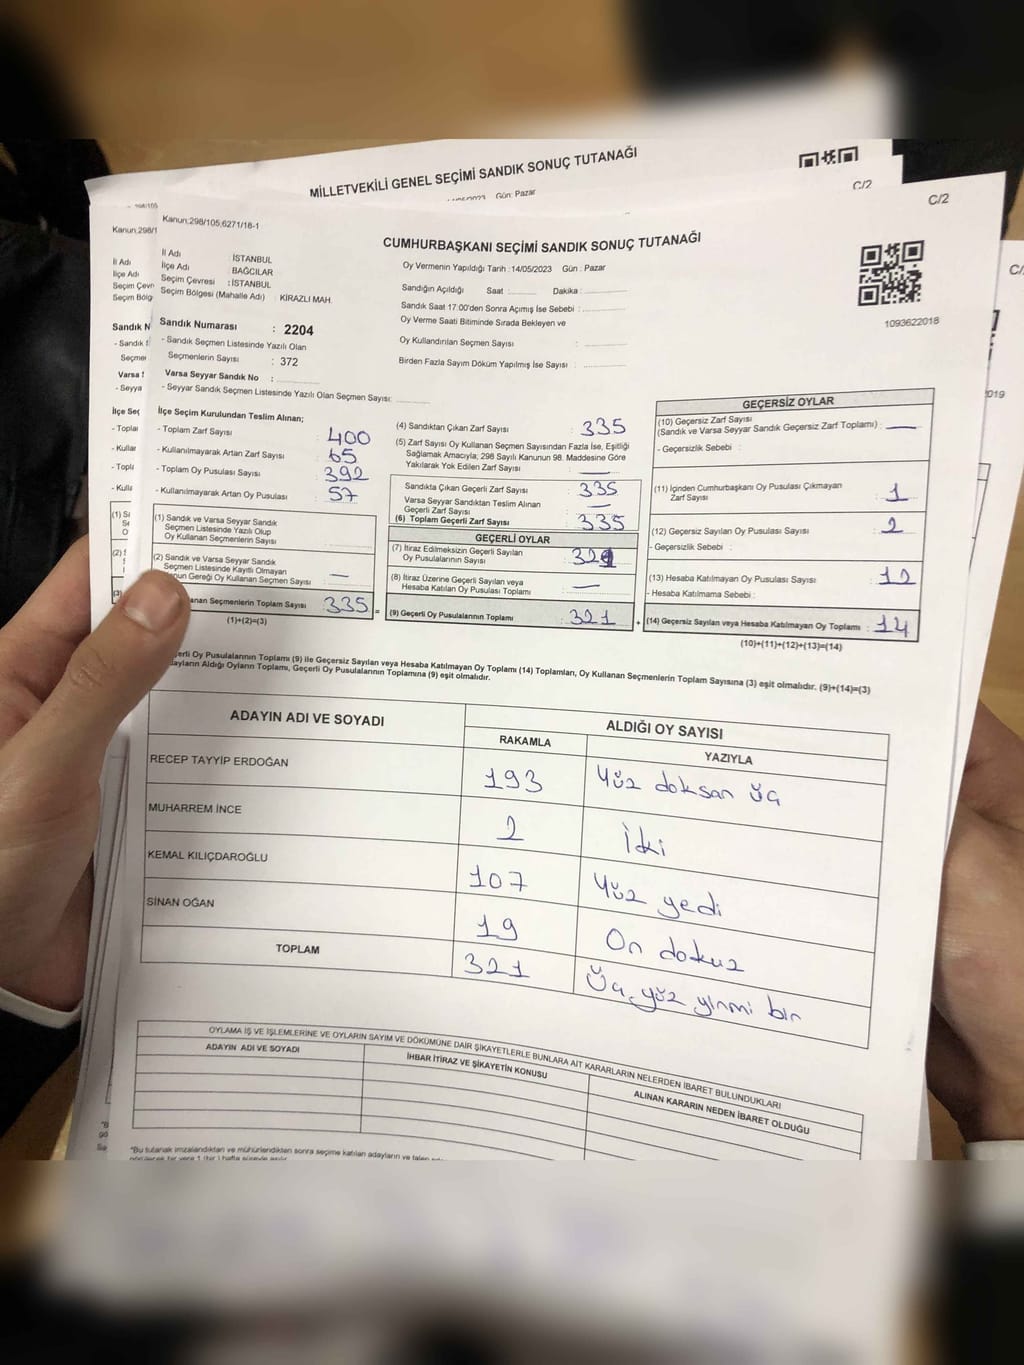 MİLLETVEKİLİ GENEL SEÇİMİ SANDIK SONUÇ TUTANAĞI
Gün: Pazar
C/2
C/2
Kanun;298/105;6271/18-1
CUMHURBAŞKANI SEÇİMİ SANDIK SONUÇ TUTANAĞI
İl Adı : İSTANBUL
İlçe Adı : BAĞCILAR
Seçim Çevresi : İSTANBUL
Seçim Bölgesi (Mahalle Adı) : KİRAZLI MAH.
Oy Vermenin Yapıldığı Tarih : 14/05/2023 Gün : Pazar
Sandığın Açıldığı Saat :.......... Dakika :..............
Sandık Saat 17:00'den Sonra Açımış İse Sebebi :..............
Oy Verme Saati Bitiminde Sırada Bekleyen ve
Oy Kullandırılan Seçmen Sayısı :..............
Birden Fazla Sayım Döküm Yapılmış İse Sayısı :..............
1093622018
Sandık Numarası : 2204
- Sandık Seçmen Listesinde Yazılı Olan
Seçmenlerin Sayısı : 372
Varsa Seyyar Sandık No :..............
- Seyyar Sandık Seçmen Listesinde Yazılı Olan Seçmen Sayısı:..............
İlçe Seçim Kurulundan Teslim Alınan;
- Toplam Zarf Sayısı : 400
- Kullanılmayarak Artan Zarf Sayısı : 65
- Toplam Oy Pusulası Sayısı : 392
- Kullanılmayarak Artan Oy Pusulası : 57
(1) Sandık ve Varsa Seyyar Sandık
Seçmen Listesinde Yazılı Olup
Oy Kullanan Seçmenlerin Sayısı :..............
(2) Sandık ve Varsa Seyyar Sandık
Seçmen Listesinde Kayıtlı Olmayan
Gereği Oy Kullanan Seçmen Sayısı : —
Seçmenlerin Toplam Sayısı : 335 =
(1)+(2)=(3)
(4) Sandıktan Çıkan Zarf Sayısı : 335
(5) Zarf Sayısı Oy Kullanan Seçmen Sayısından Fazla İse, Eşitliği
Sağlamak Amacıyla; 298 Sayılı Kanunun 98. Maddesine Göre
Yakılarak Yok Edilen Zarf Sayısı : —
Sandıkta Çıkan Geçerli Zarf Sayısı : 335
Varsa Seyyar Sandıktan Teslim Alınan
Geçerli Zarf Sayısı : —
(6) Toplam Geçerli Zarf Sayısı : 335
GEÇERLİ OYLAR
(7) İtiraz Edilmeksizin Geçerli Sayılan
Oy Pusulalarının Sayısı : 321
(8) İtiraz Üzerine Geçerli Sayılan veya
Hesaba Katılan Oy Pusulası Toplamı : —
(9) Geçerli Oy Pusulalarının Toplamı : 321 +
GEÇERSİZ OYLAR
(10) Geçersiz Zarf Sayısı
(Sandık ve Varsa Seyyar Sandık Geçersiz Zarf Toplamı) : —
- Geçersizlik Sebebi :
(11) İçinden Cumhurbaşkanı Oy Pusulası Çıkmayan
Zarf Sayısı : 1
(12) Geçersiz Sayılan Oy Pusulası Sayısı : 2
- Geçersizlik Sebebi :
(13) Hesaba Katılmayan Oy Pusulası Sayısı : 12
- Hesaba Katılmama Sebebi :
(14) Geçersiz Sayılan veya Hesaba Katılmayan Oy Toplamı : 14
(10)+(11)+(12)+(13)=(14)
Oy Pusulalarının Toplamı (9) ile Geçersiz Sayılan veya Hesaba Katılmayan Oy Toplamı (14) Toplamları, Oy Kullanan Seçmenlerin Toplam Sayısına (3) eşit olmalıdır. (9)+(14)=(3)
Aldığı Oyların Toplamı, Geçerli Oy Pusulalarının Toplamına (9) eşit olmalıdır.
ADAYIN ADI VE SOYADI
ALDIĞI OY SAYISI
RAKAMLA YAZIYLA
RECEP TAYYİP ERDOĞAN 193 Yüz doksan üç
MUHARREM İNCE 2 İki
KEMAL KILIÇDAROĞLU 107 Yüz yedi
SİNAN OĞAN 19 On dokuz
TOPLAM 321 Üç yüz yirmi bir
OYLAMA İŞ VE İŞLEMLERİNE VE OYLARIN SAYIM VE DÖKÜMÜNE DAİR ŞİKAYETLERLE BUNLARA AİT KARARLARIN NELERDEN İBARET BULUNDUKLARI
ADAYIN ADI VE SOYADI
İHBAR İTİRAZ VE ŞİKAYETİN KONUSU
ALINAN KARARIN NEDEN İBARET OLDUĞU
*Bu tutanak imzalandıktan ve mühürlendikten sonra seçime katılan adayların ve